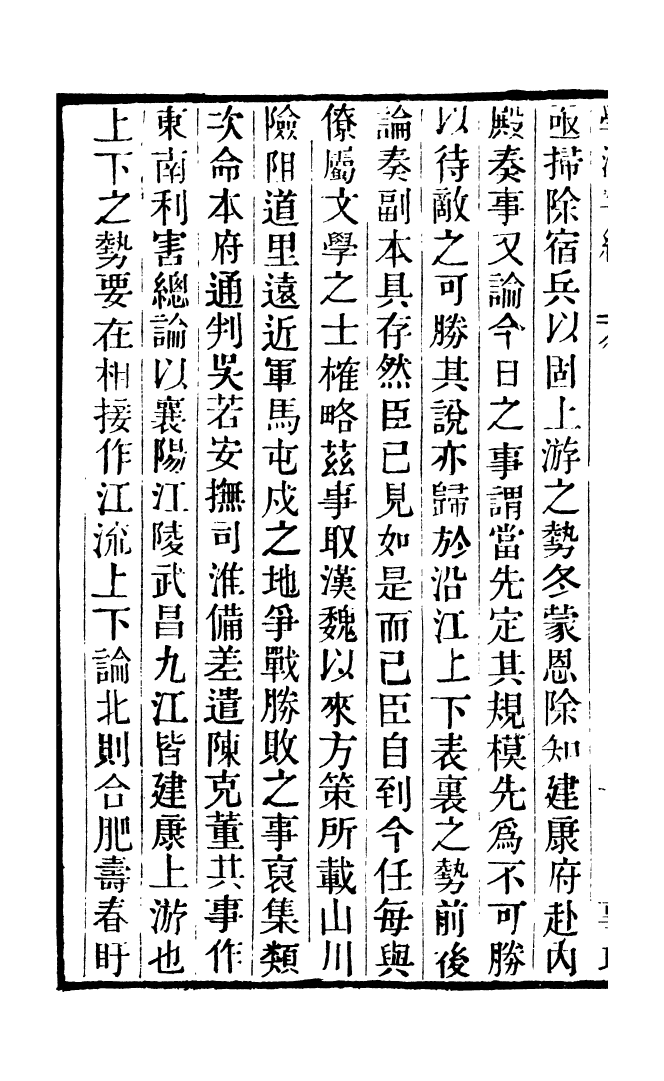 亟掃除宿兵以固上游之勢冬蒙恩除知建康府赴內
殿奏事又論今日之事謂當先定其規模先爲不可勝
以待敵之可勝其說亦歸於沿江上下表裏之勢前後
論奏副本具存然臣已見如是而已臣自到今任每與
僚屬文學之士榷略茲事取漢魏以來方策所載山川
險阻道里遠近軍馬屯戍之地爭戰勝敗之事裒集類
次命本府通判吳若安撫司淮備差遣陳克董其事作
東南利害總論以襄陽江陵武昌九江皆建康上游也
上下之勢要在相接作江流上下論北則合肥壽春盱